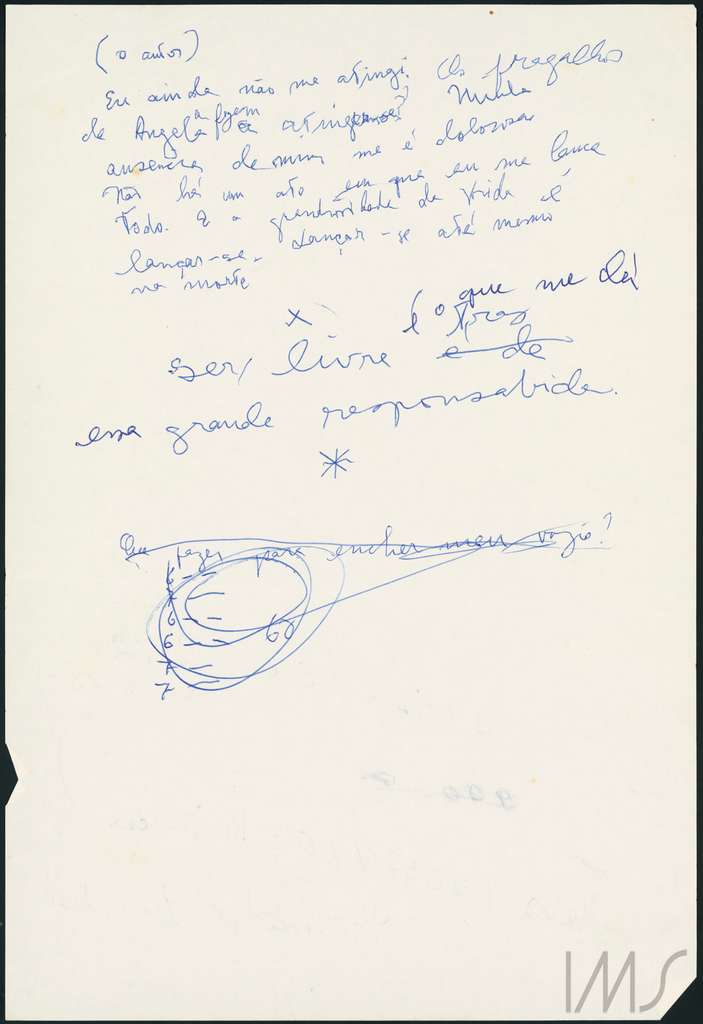 (o autor)
Eu ainda não me atingi. Os fragalhos
de Angela a fazem atingir-se? Minha
ausência de mim me é dolorosa
Não há um ato em que eu me lance
todo. E a grandiosidade da vida é
lançar-se. Lançar-se até mesmo
na morte
x é o que me dá
ser livre traz
e da
essa grande responsabida.
*
Que fazer para encher meu vazio?
6 —
7 —
6 — —
6 — 60
7 —
7 —
IMS